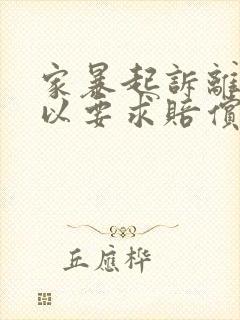 家暴起訴離
以要求賠償
丘應樺